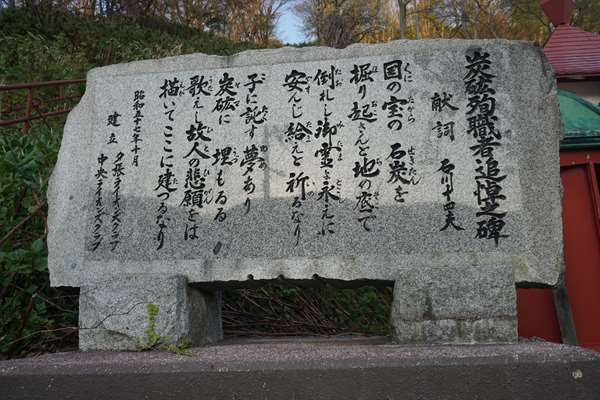 炭砿殉職者追悼之碑
献詞 石川十四夫
国の宝の石炭を
掘り起さんと地の底で
倒れし御霊よ永えに
安んじ給えと祈るなり
子に託す夢あり
炭砿に埋もるる
歌えし故人の悲願をは
描いてここに建つるなり
昭和五十七年十月
建立 夕張ライオンズクラブ
中央ライオンズクラブ